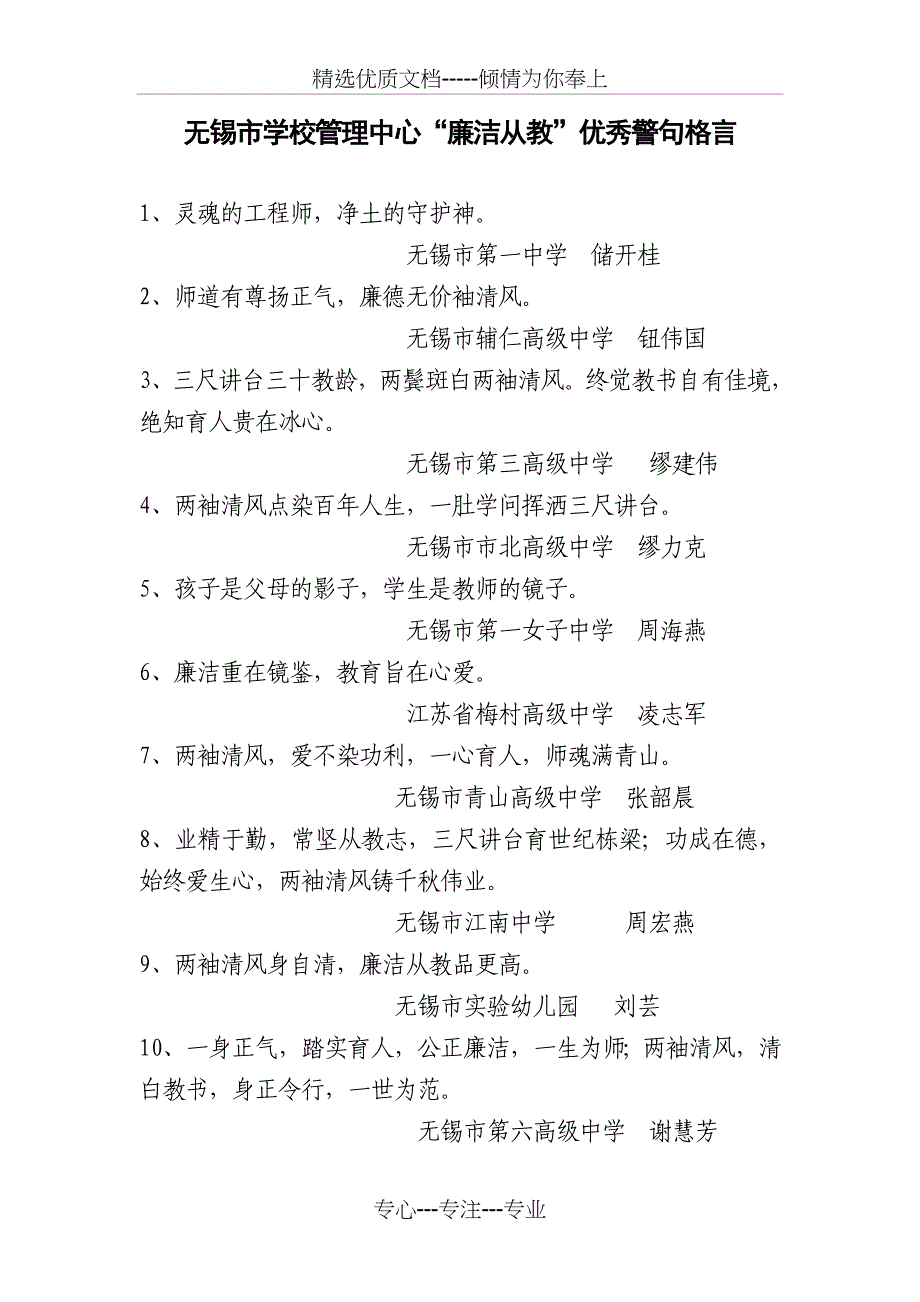 精选优质文档-----倾情为你奉上
无锡市学校管理中心“廉洁从教”优秀警句格言
1、灵魂的工程师，净土的守护神。
无锡市第一中学　储开桂
2、师道有尊扬正气，廉德无价袖清风。
无锡市辅仁高级中学　钮伟国
3、三尺讲台三十教龄，两鬓斑白两袖清风。终觉教书自有佳境，
绝知育人贵在冰心。
无锡市第三高级中学　缪建伟
4、两袖清风点染百年人生，一肚学问挥洒三尺讲台。
无锡市市北高级中学　缪力克
5、孩子是父母的影子，学生是教师的镜子。
无锡市第一女子中学　周海燕
6、廉洁重在镜鉴，教育旨在心爱。
江苏省梅村高级中学　凌志军
7、两袖清风，爱不染功利，一心育人，师魂满青山。
无锡市青山高级中学　张韶晨
8、业精于勤，常坚从教志，三尺讲台育世纪栋梁；功成在德，
始终爱生心，两袖清风铸千秋伟业。
无锡市江南中学　　　周宏燕
9、两袖清风身自清，廉洁从教品更高。
无锡市实验幼儿园　刘芸
10、一身正气，踏实育人，公正廉洁，一生为师；两袖清风，清
白教书，身正令行，一世为范。
无锡市第六高级中学　谢慧芳
专心---专注---专业